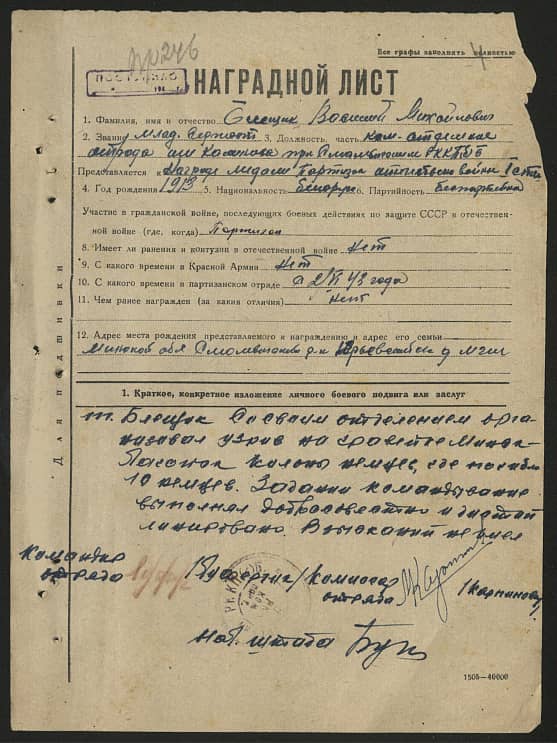 Все графы заполнять полностью
№ 246
4
НАГРАДНОЙ ЛИСТ
1. Фамилия, имя и отчество Блещик Василий Михайлович
2. Звание Млад. Сержант 3. Должность, часть ком. отделения
отряда им Калинова при Смолевичском РККП(б)Б
Представляется к Награде медали "Партизан отечествен войны I степ.
4. Год рождения 1913 5. Национальность белорус 6. Партийность беспартейный
Участие в гражданской войне, последующих боевых действиях по защите СССР и отечествен-
ной войне (где, когда) Партизан
8. Имеет ли ранения и контузии в отечественной войне Нет
9. С какого времени в Красной Армии Нет
10. С какого времени в партизанском отряде с 43 года
11. Чем ранее награжден (за какие отличия) Нет
12. Адрес места рождения представляемого к награждению и адрес его семьи
Минской обл Смолевичского р-н д
Для подшивки
1. Краткое, конкретное изложение личного боевого подвига или заслуг
т. Блещик Со своим отделением орга-
низовал взрив на Минск-
колоны немцев, где погибло
10 немцев. Задании командывание
выполнял добросовестно и дисцип
линировано. Взысканий не имел
Командир
отряда
Комиссар
отряда
Нач. штаба
1505—40000